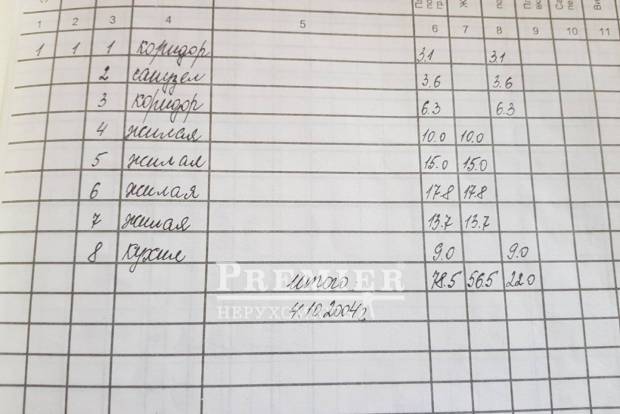 1 2 3 4 5 6 7 8 9 10 11
1 1 1 коридор 3.1 3.1
2 санузел 3.6 3.6
3 коридор 6.3 6.3
4 жилая 10.0 10.0
5 жилая 15.0 15.0
6 жилая 17.8 17.8
7 жилая 13.7 13.7
8 кухня 9.0 9.0
PREMIER
итого 78.5 56.5 22.0
4.10.2004г.